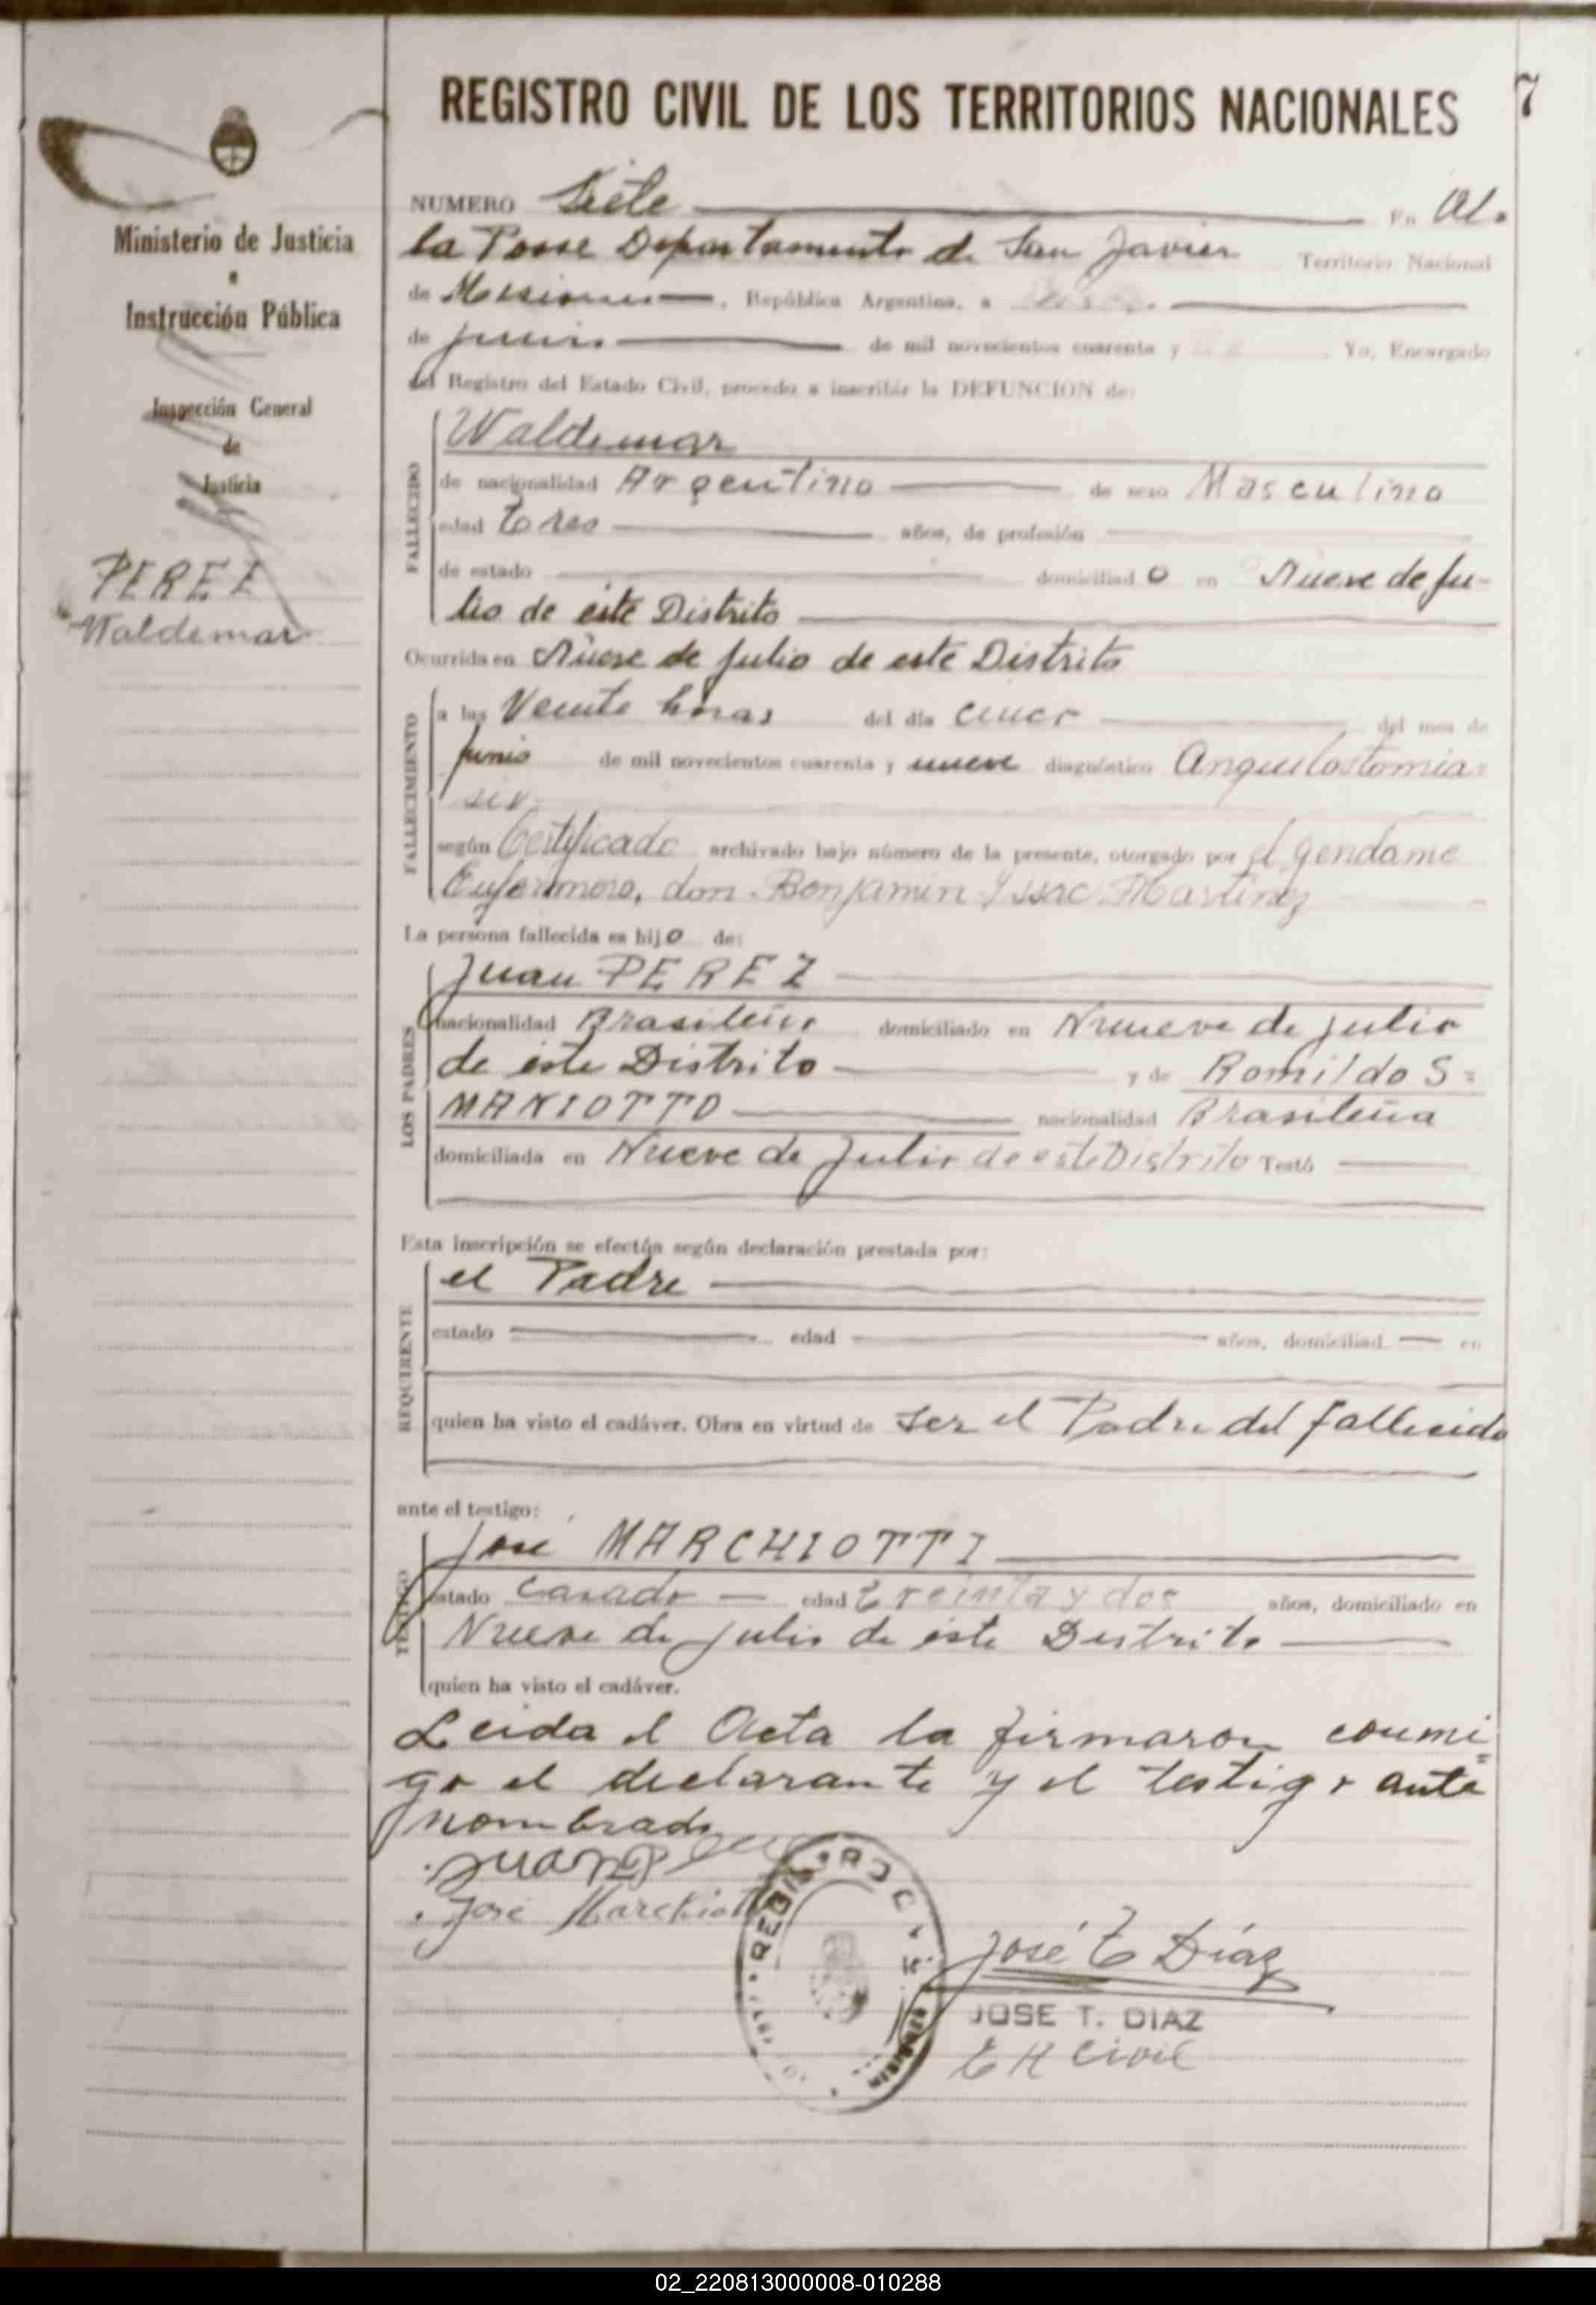 7
REGISTRO CIVIL DE LOS TERRITORIOS NACIONALES
Ministerio de Justicia
e
Instrucción Pública
Inspección General
de
Justicia
PEREZ
Waldemar
NUMERO Siete En Al.
ba Posse Departamento de San Javier Territorio Nacional
de Misiones, República Argentina, a
de junio de mil novecientos cuarenta y Yo, Encargado
del Registro del Estado Civil, procedo a inscribir la DEFUNCION de:
FALLECIDO
Waldemar
de nacionalidad Argentino de sexo Masculino
edad tres años, de profesión
de estado domiciliado en Nueve de Ju-
lio de este Distrito
Ocurrida en Nueve de Julio de este Distrito
FALLECIMIENTO
a las Veinte horas del día cinco del mes de
junio de mil novecientos cuarenta y nueve diagnóstico Anquilostomia
según Certificado archivado bajo número de la presente, otorgado por el gendame
Enfermero, don Benjamin Yssac Martinez
La persona fallecida es hijo de:
LOS PADRES
Juan PEREZ
nacionalidad Brasileño domiciliado en Nueve de Julio
de este Distrito y de Romilda S=
MANIOTTO nacionalidad Brasileña
domiciliada en Nueve de Julio de este Distrito Testó
Esta inscripción se efectúa según declaración prestada por:
REQUIRENTE
el Padre
estado edad años, domiciliad en
quien ha visto el cadáver. Obra en virtud de ser el Padre del fallecido
ante el testigo:
TESTIGO
José MARCHIOTTI
estado casado edad treinta y dos años, domiciliado en
Nueve de Julio de este Distrito
quien ha visto el cadáver.
Leida el Acta la firmaron conmi
go el declarante y el testigo ante
nombrado
Juan P
José Marchiotti
José T Díaz
JOSE T. DIAZ
E R Civil
02_220813000008-010288